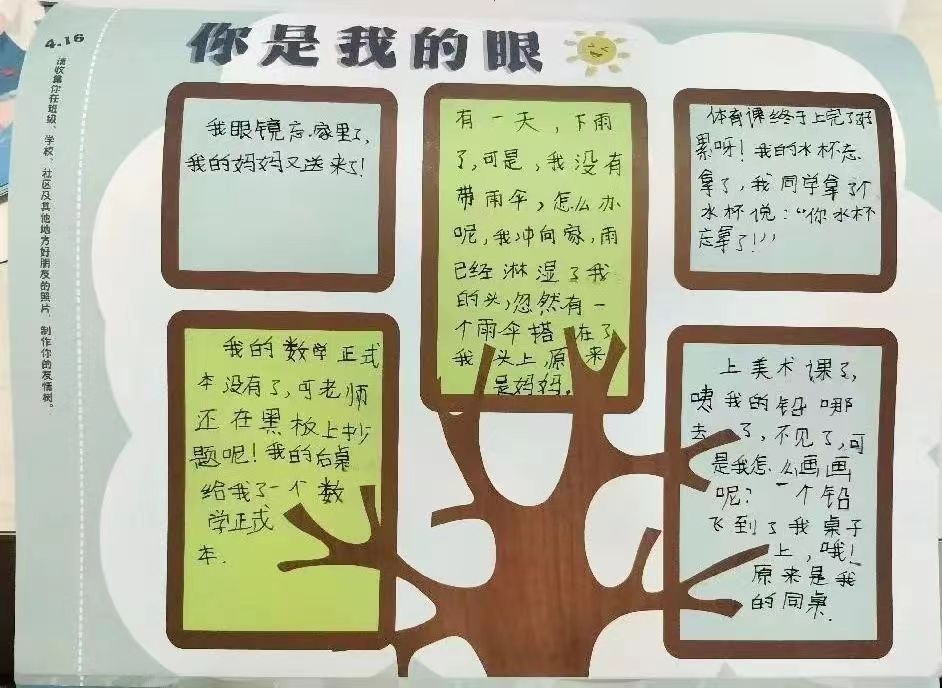 4.16
请收集你在班级、学校、社区及其他地方好朋友的照片，制作你的友情树。
你是我的眼
我眼镜忘家里了,
我的妈妈又送来了!
有一天，下雨
了,可是,我没有
带雨伞,怎么办
呢,我冲向家,雨
已经淋湿了我
的头,忽然有一
个雨伞搭在了
我头上原来
是妈妈.
体育课终于上完了好
累呀!我的水杯忘
拿了,我同学拿了个
水杯说:“你水杯
忘拿了!”
我的数学正式
本没有了,可老师
还在黑板上抄
题呢!我的后桌
给我了一个数
学正式
本.
上美术课了,
咦我的铅哪
去了,不见了,可
是我怎么画画
呢?一个铅
飞到了我桌子
上,哦!
原来是我
的同桌.